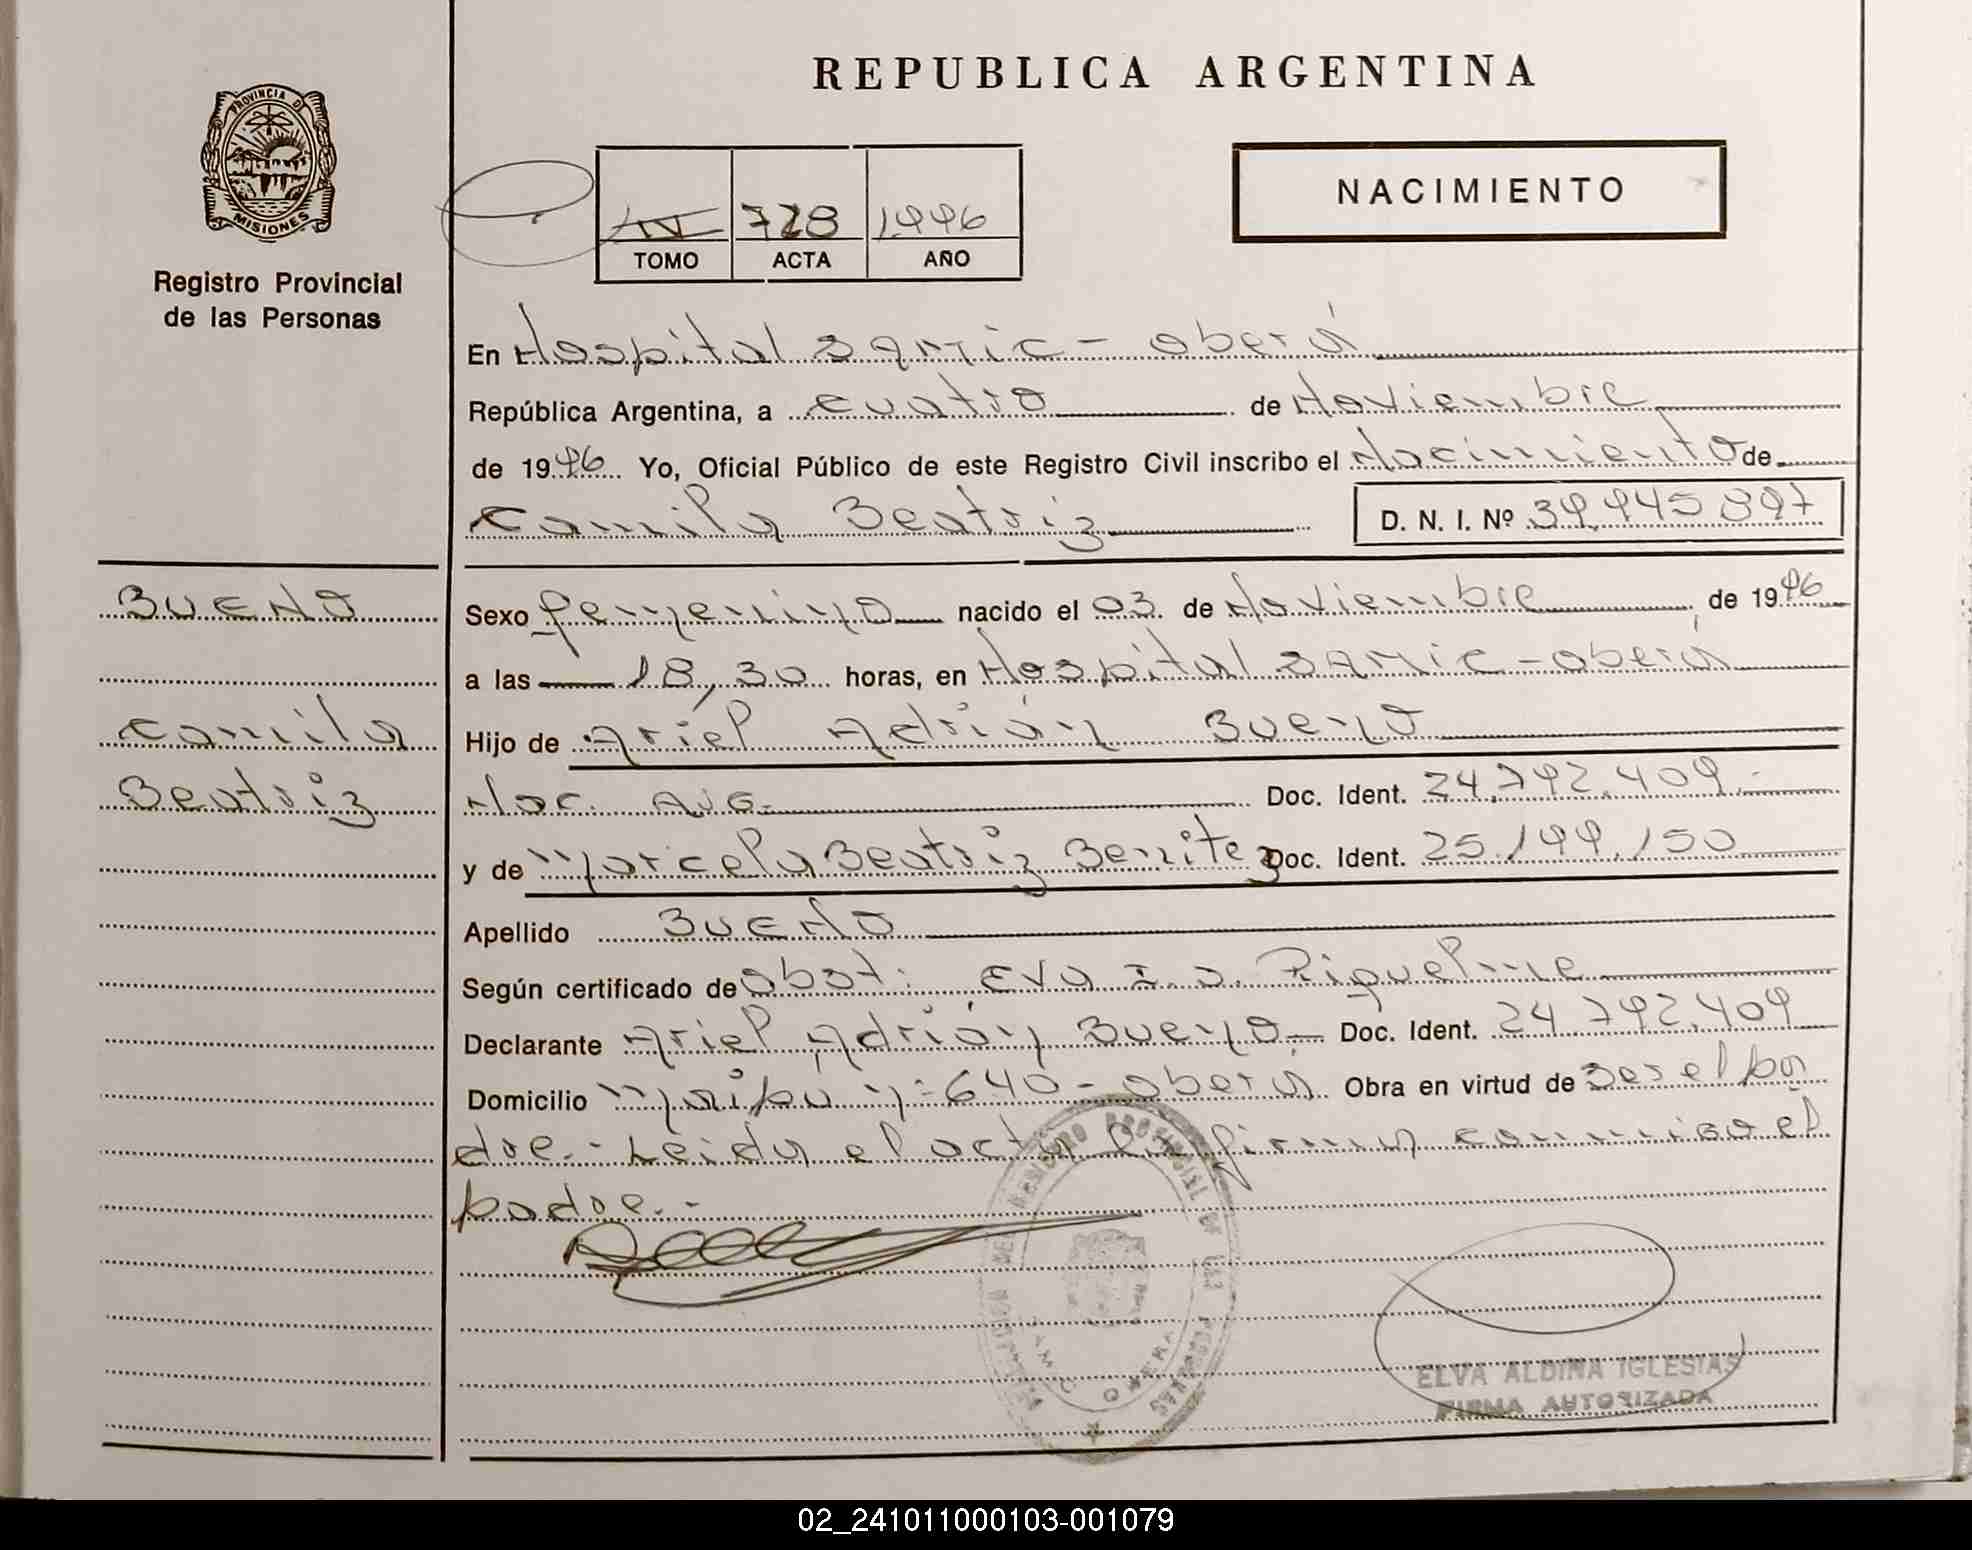 REPUBLICA ARGENTINA
PROVINCIA D MISIONES
Registro Provincial
de las Personas
IV 728 1996
TOMO ACTA AÑO
NACIMIENTO
En Hospital SAMIC - Oberá
República Argentina, a cuatro de Noviembre
de 1996 Yo, Oficial Público de este Registro Civil inscribo el Nacimiento de
Camila Beatriz D. N. I. Nº 39.945 897
BUENO
Camila
Beatriz
Sexo femenino nacido el 03 de Noviembre de 1996
a las 18,30 horas, en Hospital SAMIC - Oberá
Hijo de Ariel Adrián Bueno
Nac. Arg. Doc. Ident. 24.792.409.-
y de Marcela Beatriz Benitez Doc. Ident. 25.199.150
Apellido BUENO
Según certificado de Obst: Eva I. D. Riquelme
Declarante Ariel Adrián Bueno.- Doc. Ident. 24.792.409
Domicilio Maipu n: 640 - Oberá Obra en virtud de ser el pa
dre.- Leida el acta la firma conmigo el
padre.-
REGISTRO PROVINCIAL DE LAS PERSONAS
ELVA ALDINA IGLESIAS
FIRMA AUTORIZADA
02_241011000103-001079